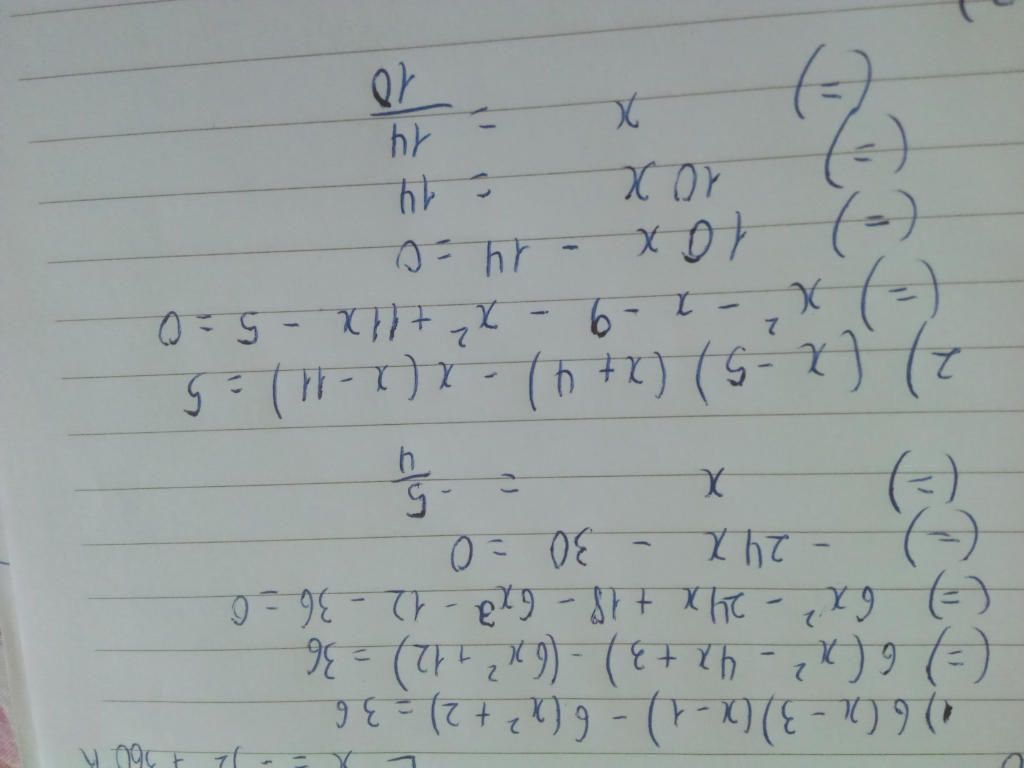 1) 6(x-3)(x-1) - 6(x²+2) = 36
(=) 6(x² - 4x + 3) - (6x² + 12) = 36
(=) 6x² - 24x + 18 - 6x² - 12 - 36 = 0
(=) - 24x - 30 = 0
(=) x = -5/4
2) (x-5)(x+4) - x(x-11) = 5
(=) x² - x - 9 - x² + 11x - 5 = 0
(=) 10x - 14 = 0
(=) 10x = 14
(=) x = 14/10